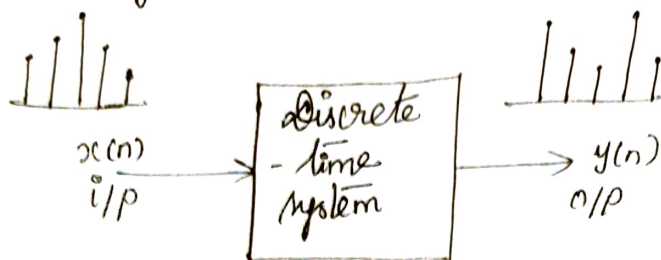 x(n)
i/p
Discrete
- time
system
y(n)
o/p